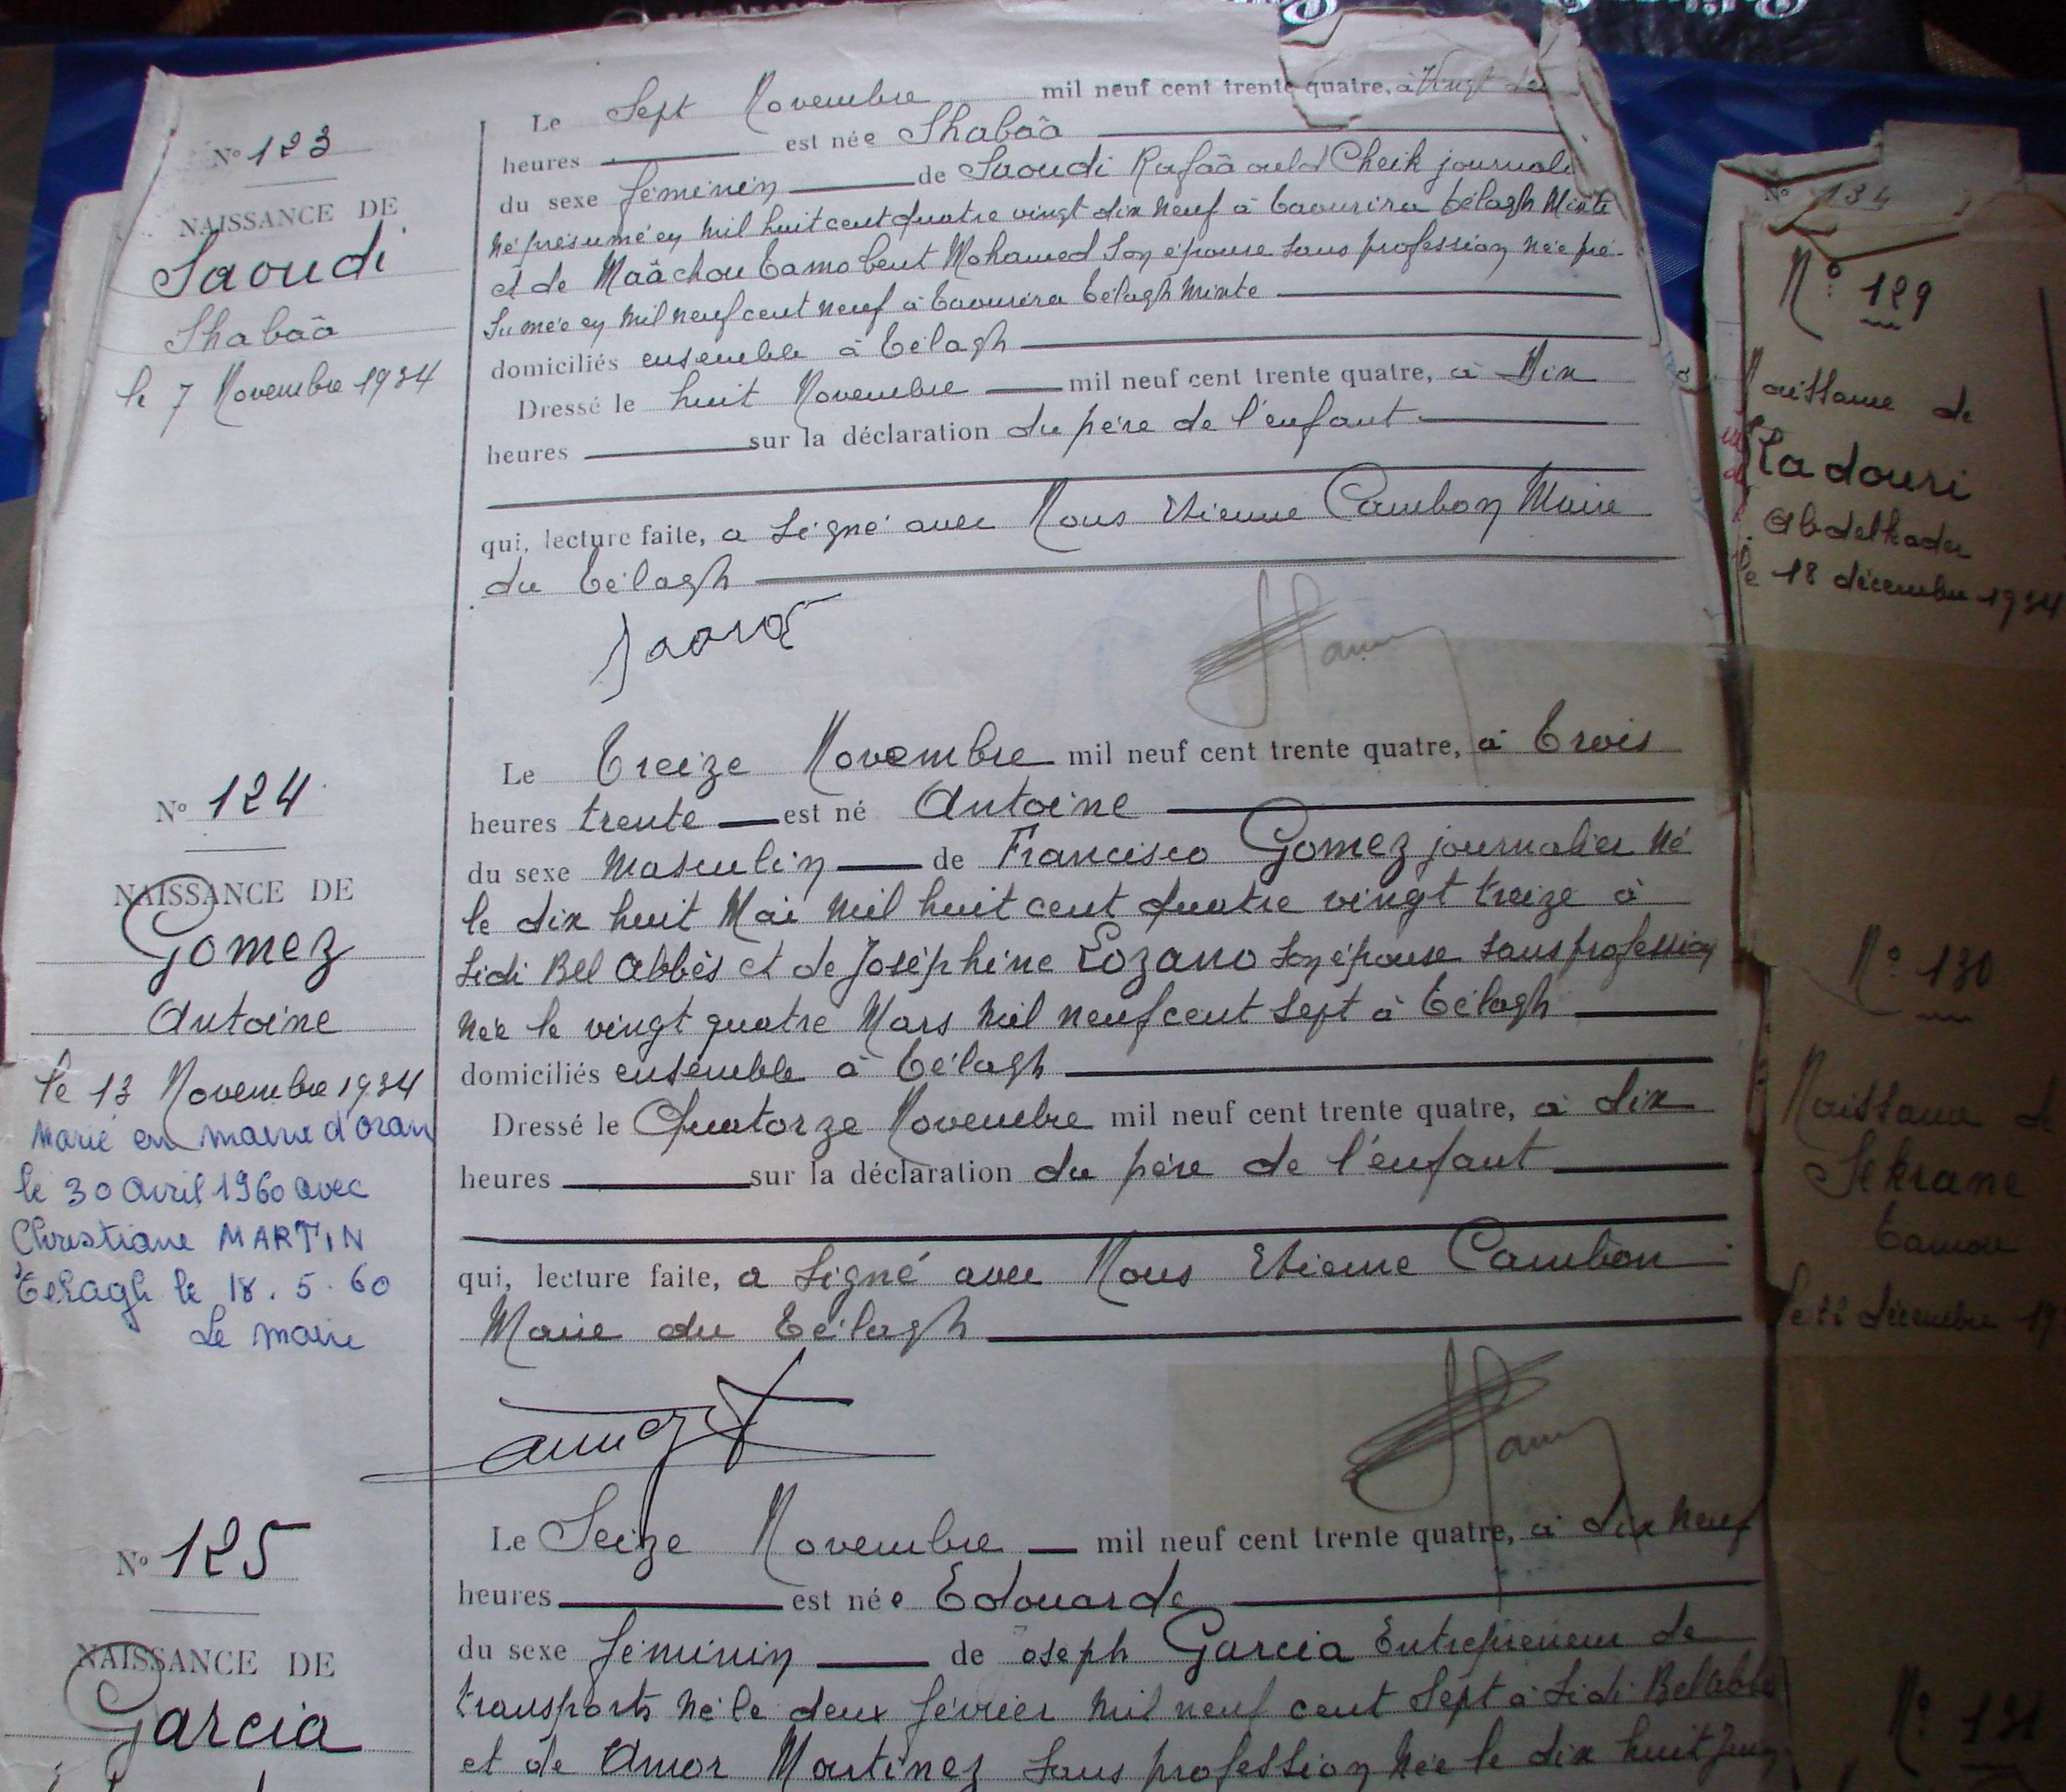 N° 123
NAISSANCE DE
Saoudi
Shabâa
le 7 Novembre 1934
Le Sept Novembre mil neuf cent trente quatre, à Vingt
heures est née Shabâa
du sexe féminin de Saoudi Rafâa ould Cheik journali
Né présumé en mil huit cent quatre vingt dix neuf à Taourira Télagh Mixte
et de Maâchou Tamo bent Mohamed son épouse sans profession née pré-
sumée en mil neuf cent neuf à Taourira Télagh Mixte
domiciliés ensemble à Télagh
Dressé le huit Novembre mil neuf cent trente quatre, à Dix
heures sur la déclaration du père de l'enfant
qui, lecture faite, a signé avec Nous Etienne Cambon Maire
du Télagh
N° 124
NAISSANCE DE
Gomez
Antoine
le 13 Novembre 1934
Marié en mairie d'oran
le 30 avril 1960 avec
Christiane MARTIN
Telagh le 18.5.60
Le maire
Le Treize Novembre mil neuf cent trente quatre, à Trois
heures trente est né Antoine
du sexe Masculin de Francisco Gomez journalier Né
le dix huit Mai mil huit cent quatre vingt treize à
Sidi Bel Abbès et de Joséphine Lozano son épouse sans profession
née le vingt quatre Mars mil neuf cent sept à Télagh
domiciliés ensemble à Télagh
Dressé le Quatorze Novembre mil neuf cent trente quatre, à dix
heures sur la déclaration du père de l'enfant
qui, lecture faite, a signé avec Nous Etienne Cambon
Maire du Télagh
N° 125
NAISSANCE DE
Garcia
Le Seize Novembre mil neuf cent trente quatre, à dix neuf
heures est née Edouarde
du sexe féminin de Joseph Garcia Entrepreneur de
transports né le deux février mil neuf cent sept à Sidi Bel Abbè
et de Amor Martinez sans profession née le dix huit Juin
N° 134
N° 129
Naissance de
Kadouri
Abdelkader
le 18 décembre 1934
N° 130
Naissance de
Sekrane
Tamou
le 22 décembre 19
N° 131